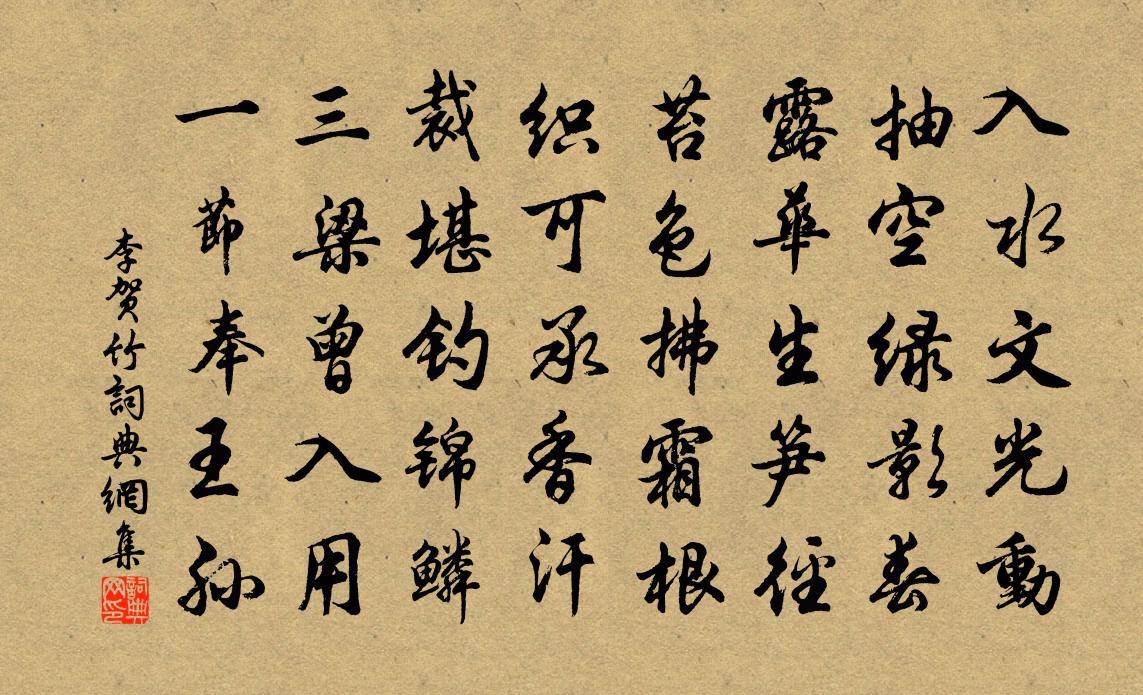 入水文光動
抽空绿影春
露華生笋徑
苔色拂霜根
织可承香汗
裁堪钓锦鳞
三梁曾入用
一節奉王孙
李贺竹詞典網集
詞典网印